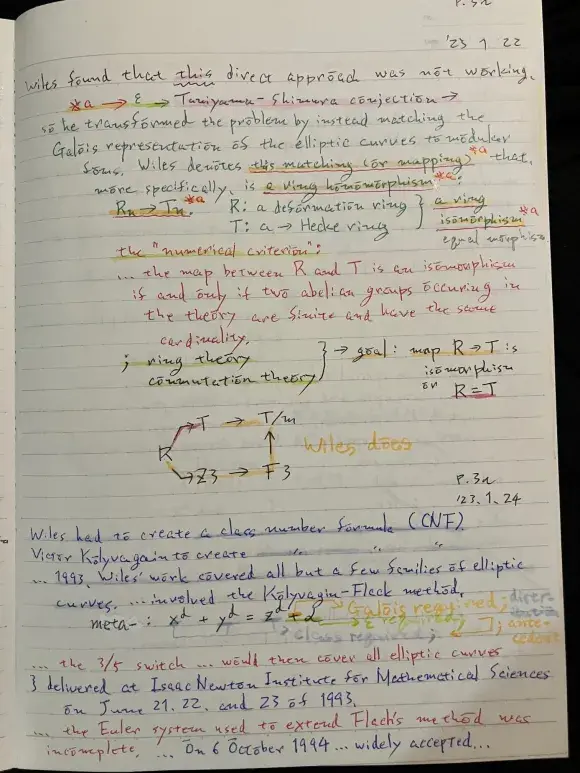 P.32
'23 1 22
Wiles found that this direct approach was not working,
*a → ε → Taniyama-Shimura conjection →
so he transformed the problem by instead matching the
Galois representation of the elliptic curves to modular
foms, Wiles denotes this matching (or mapping)*a that,
more specifically, is a ring homomorphism*a:
Rn → Tn.*a R: a deformation ring } a ring
T: a → Hecke ring isomorphism*a
equal morphism.
the "numerical criterion":
... the map between R and T is an isomorphism
if and only if two abelian groups occuring in
the theory are finite and have the same
cardinality.
; ring theory } → goal: map R → T is
commutation theory isomorphism
or R = T
T → T/m
R Wiles does
Z3 → F3
P.32
'23.1.24
Wiles had to create a class number formula (CNF).
Victor Kolyvagain to create 〃 〃 〃
... 1993, Wiles' work covered all but a few families of elliptic
curves, ... involved the Kolyvagin-Flack method,
meta- : x^d + y^d = z^d + 2 Galois required;
class required; ante-
cedent
... the 3/5 switch ... would then cover all elliptic curves
3 delivered at Isaac Newton Institute for Mathematical Sciences
on June 21, 22, and 23 of 1993.
... the Euler system used to extend Flach's method was
incomplete. ... On 6 October 1994 ... widely accepted...